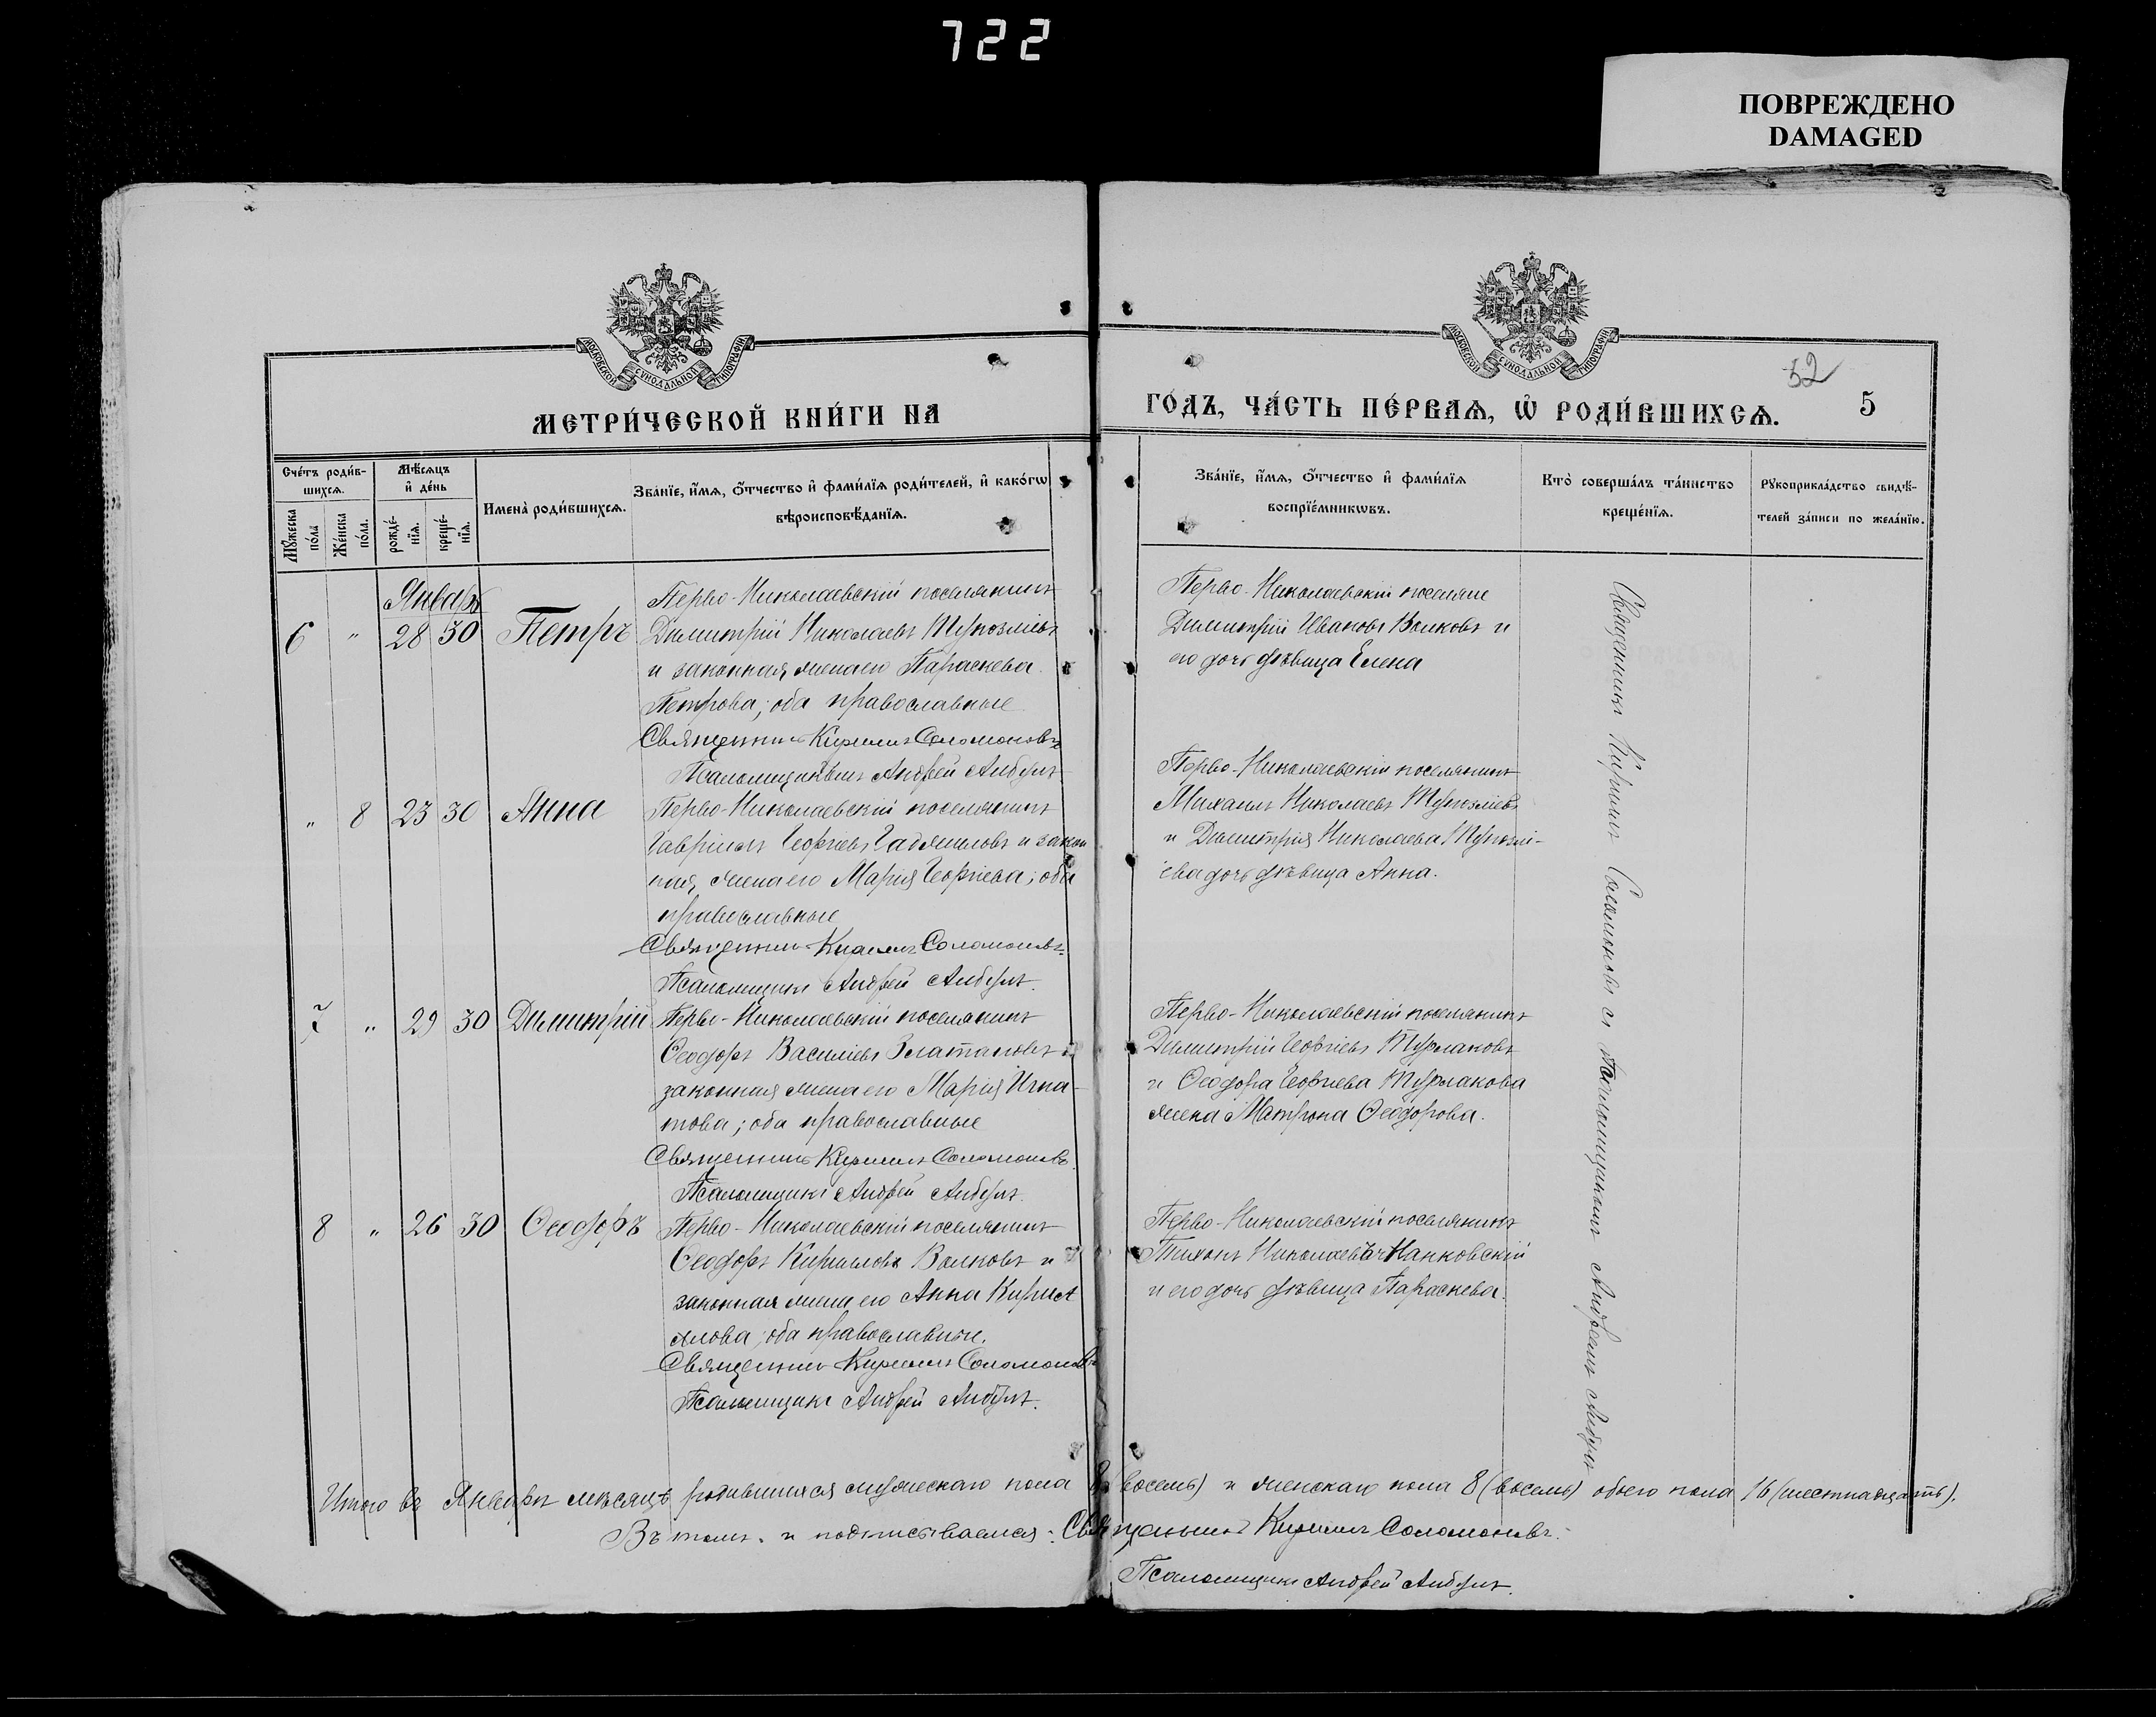 722
ПОВРЕЖДЕНО
DAMAGED
МОСКОВСКОЙ СѴНОДАЛЬНОЙ ТИПОГРАФІИ
МОСКОВСКОЙ СѴНОДАЛЬНОЙ ТИПОГРАФІИ
32
МЕТРИ́ЧЕСКОЙ КНИ́ГИ НА
ГО́ДЪ, ЧА́СТЬ ПЕ́РВАѦ, Ѡ҆ РОДИ́ВШИХСѦ. 5
Сче́тъ роди́в-
шихсѧ.
Мꙋ́жеска по́ла
Же́нска по́ла.
Мѣ́сѧцъ
и҆ де́нь
рожде́-нїѧ.
креще́-нїѧ.
Имена̀ роди́вшихсѧ.
Зва́нїе, и҆́мѧ, ѻ҆́тчество и҆ фами́лїѧ роди́телей, и҆ како́гѡ
вѣроисповѣ́данїѧ.
Зва́нїе, и҆́мѧ, ѻ҆́тчество и҆ фами́лїѧ
воспрїе́мникѡвъ.
Кто̀ соверша́лъ та́инство
креще́нїѧ.
Рꙋкоприкла́дство свидѣ́-
телей за́писи по жела́нїю.
Январь
6 " 28 30 Петръ
Перво-Николаевскій поселянинъ
Димитрій Николаевъ
и законная жена его Параскева
Петрова; оба православные
Священникъ Кириллъ Соломоновъ
Псаломщикъ Андрей
Перво-Николаевскій поселяне
Димитрій Ивановъ Волковъ и
его дочь дѣвица Елена
" 8 23 30 Анна
Перво-Николаевскій поселянинъ
Гавріилъ Георгіевъ и закон
ная жена его Марія Георгіева; оба
православные
Священникъ Кириллъ Соломоновъ
Псаломщикъ Андрей
Перво-Николаевскій поселянинъ
Михаилъ Николаевъ
и Димитрія Николаева
ева дочь дѣвица Анна.
7 " 29 30 Димитрій
Перво-Николаевскій поселянинъ
Ѳеодоръ Василіевъ Златановъ и
законная жена его Марія Игна-
това; оба православные
Священникъ Кириллъ Соломоновъ
Псаломщикъ Андрей
Перво-Николаевскій поселянинъ
Димитрій Георгіевъ Турлаковъ
и Ѳеодора Георгіева Турлакова
жена Матрона Ѳеодорова.
8 " 26 30 Ѳеодоръ
Перво-Николаевскій поселянинъ
Ѳеодоръ Кирилловъ Волковъ и
законная жена его Анна Кирил
лова; оба православные.
Священникъ Кириллъ Соломоновъ
Псаломщикъ Андрей
Перво-Николаевскій поселянинъ
Тихонъ Николаевъ
и его дочь дѣвица Параскева.
Священникъ Кириллъ Соломоновъ съ Псаломщикомъ Андреемъ
Итого въ Январѣ мѣсяцѣ родившихся мужескаго пола 8 (восемь) и женскаго пола 8 (восемь) обоего пола 16 (шестнадцать).
Въ томъ и подписываемся: Священникъ Кириллъ Соломоновъ.
Псаломщикъ Андрей